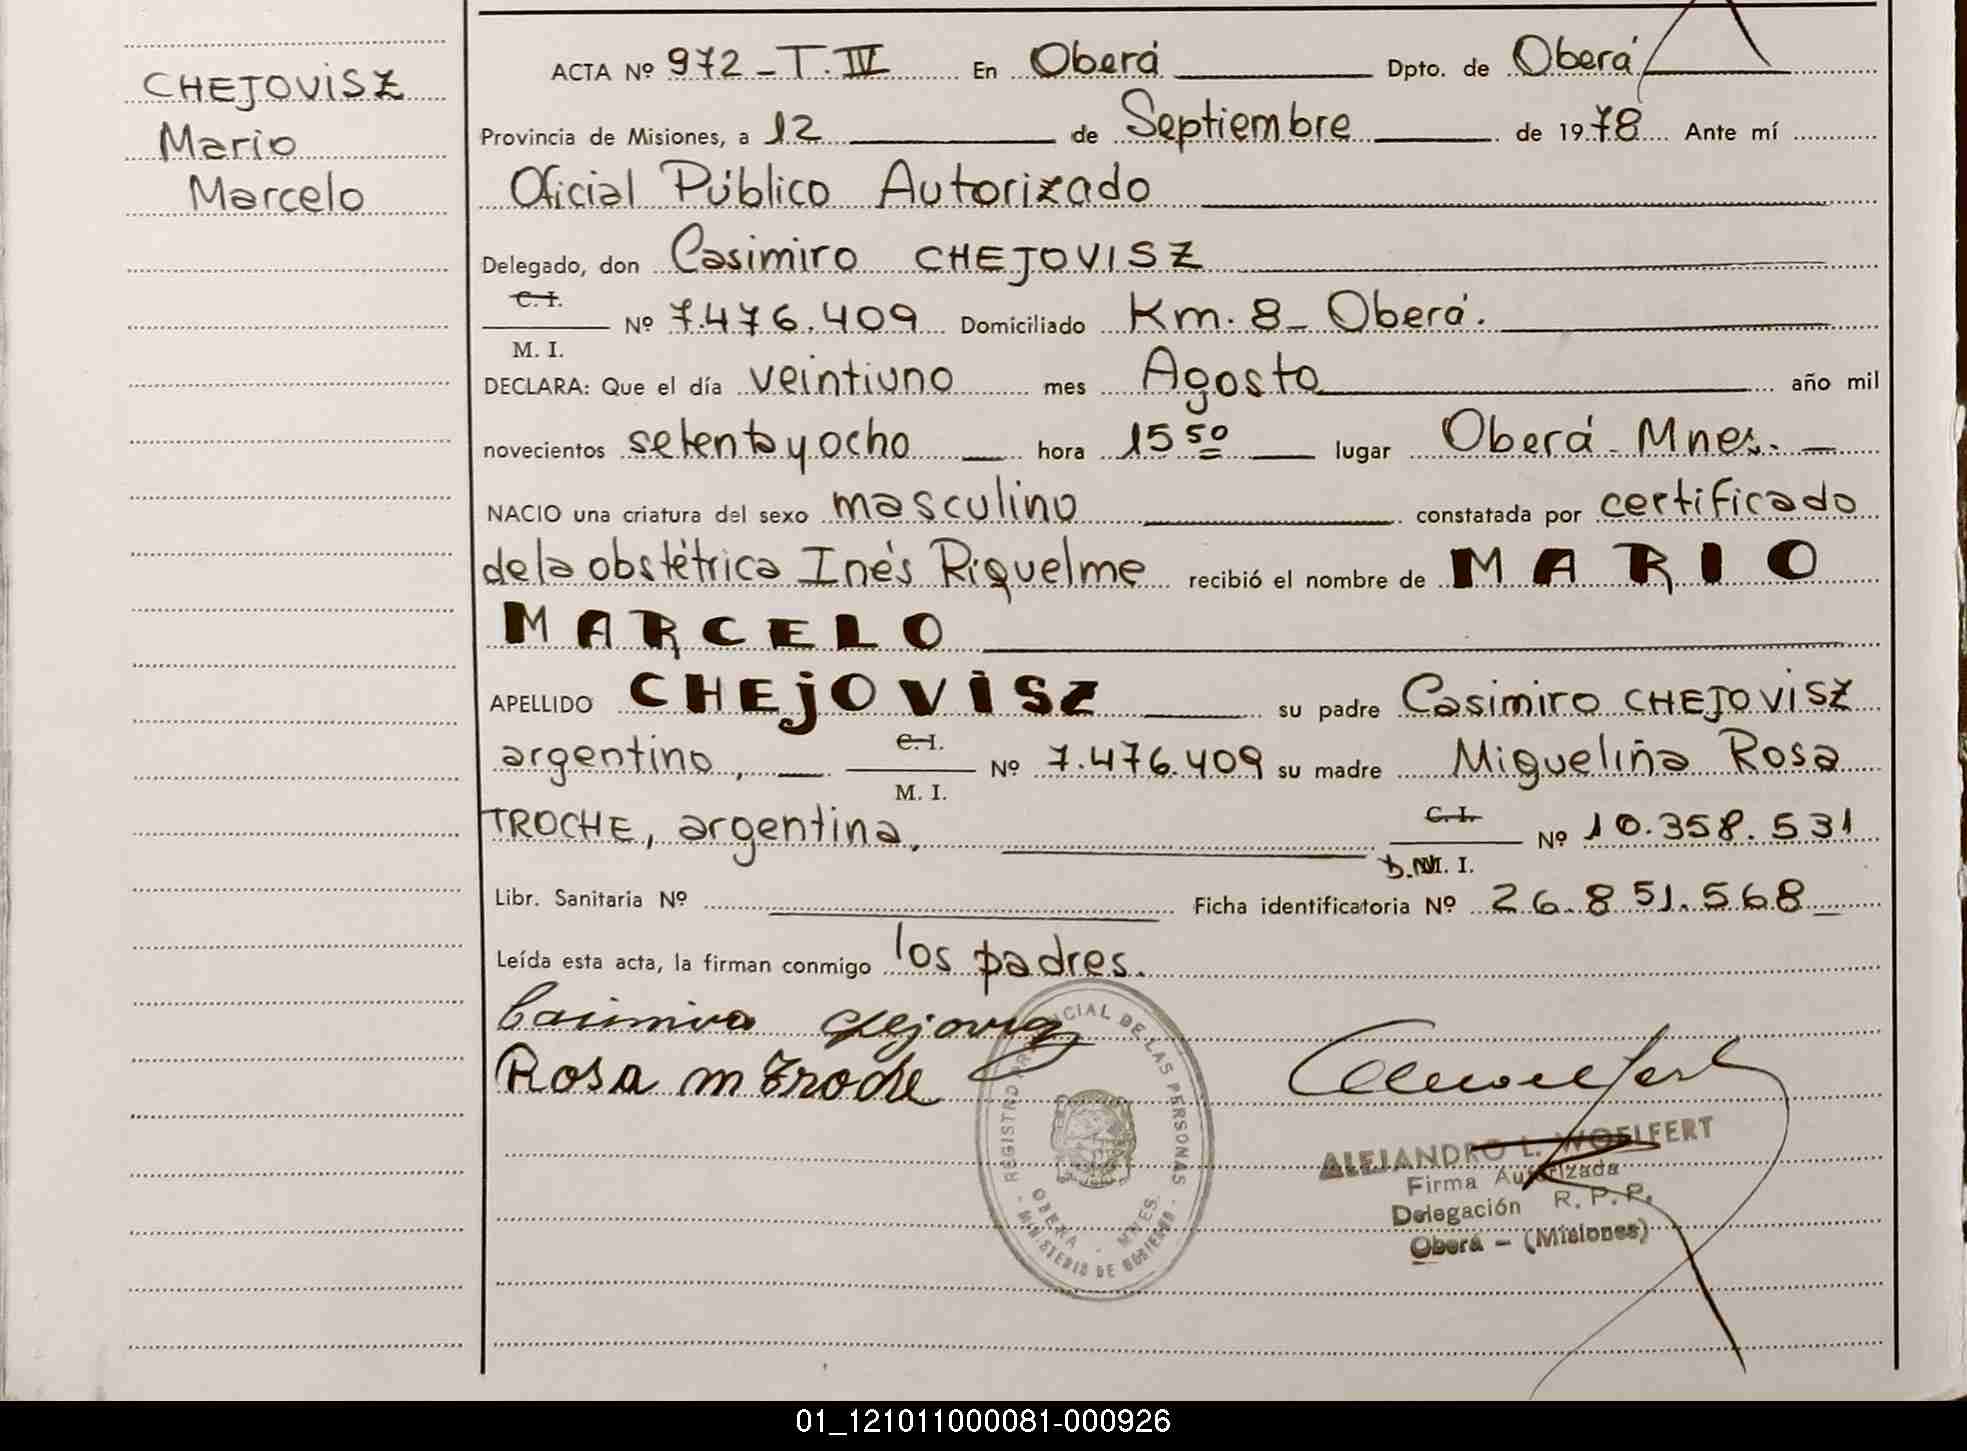 CHEJOVISZ
Mario
Marcelo
ACTA Nº 972-T.IV En Oberá Dpto. de Oberá
Provincia de Misiones, a 12 de Septiembre de 1978 Ante mí
Oficial Público Autorizado
Delegado, don Casimiro CHEJOVISZ
C. I.
Nº 7.476.409 Domiciliado Km. 8 - Oberá.
M. I.
DECLARA: Que el día veintiuno mes Agosto año mil
novecientos setenta y ocho hora 15 50 lugar Oberá - Mnes. -
NACIO una criatura del sexo masculino constatada por certificado
de la obstétrica Inés Riquelme recibió el nombre de MARIO
MARCELO
APELLIDO CHEjOViSZ su padre Casimiro CHEJOVISZ
argentino, C. I. Nº 7.476.409 su madre Migueliña Rosa
M. I.
TROCHE, argentina, C. I. Nº 10.358.531
D.N.I.
Libr. Sanitaria Nº Ficha identificatoria Nº 26.851.568
Leída esta acta, la firman conmigo los padres.
Rosa m Troche
REGISTRO PROVINCIAL DE LAS PERSONAS
OBERA - MNES.
MINISTERIO DE GOBIERNO
ALEJANDRO L. WOELFERT
Firma Autorizada
Delegación R. P. P.
Oberá - (Misiones)
01_121011000081-000926